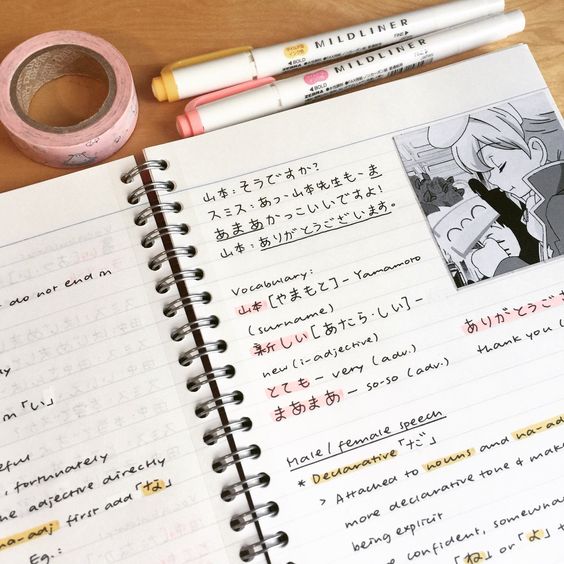 MILDLINER
BOLD
ZEBRA
FINE
MILDLINER
BOLD
ZEBRA
山本:そうですか?
スミス:あっ、山本先生も、ま
あまあかっこいいですよ!
山本:ありがとうございます。
Vocabulary:
山本[やまもと]- Yamamoto
(surname)
新しい[あたら・しい]-
new (i-adjective)
とても - very (adv.)
まあまあ - so-so (adv.)
ありがとうござ
thank you (
Male/female speech
* Declarative「だ」
> Attached to nouns and na-ad
more declarative tone & make
being explicit
confident, somewha
「ね」or「よ」
do not end in
「い」
, fortunately
the adjective directly
na-adj first add「な」
Eg.: